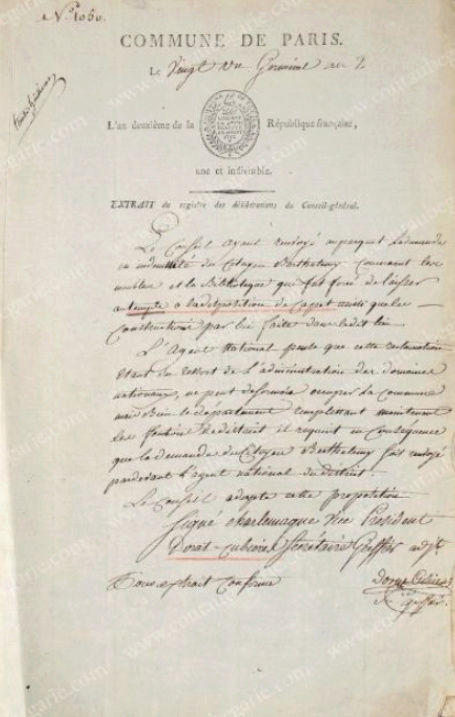 N.º 1060.
COMMUNE DE PARIS.
Le Vingt un Germinal an 2
L'an deuxième de la République française,
une et indivisible.
EXTRAIT du registre des délibérations du Conseil-général.
Le Conseil ayant renvoyé au parquet la demande
en indemnité du Citoyen Barthelemy concernant les
meubles et la Bibliotheque qui fut forcé de laisser
au temple a la disposition de Capet ainsi que les
Constructions par lui faite dans ledit lieu
L'Agent National pense que cette reclamation
étant du ressort de l'administration des domaines
nationaux, ne peut desormais occuper la Commune
mais Bien le departement remplettant maintenant
les fonctions il requiert en Consequence
que la demande du Citoyen Barthelemy soit renvoyé
pardevant l'agent national du district.
Le Conseil adopte cette proposition
Signé charlemagne Vice President
Dorat-cubieres Secretaire Greffier adjt
Pour extrait Conforme
Dorat Cubieres
greffier
www.coutaubegarie.com